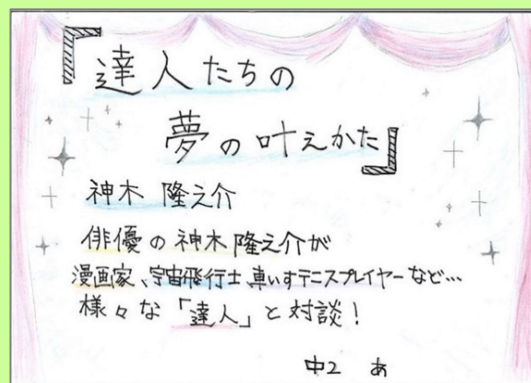 『達人たちの
夢の叶えかた』
神木 隆之介
俳優の神木隆之介が
漫画家、宇宙飛行士、車いすテニスプレイヤーなど…
様々な「達人」と対談!
中2 あ